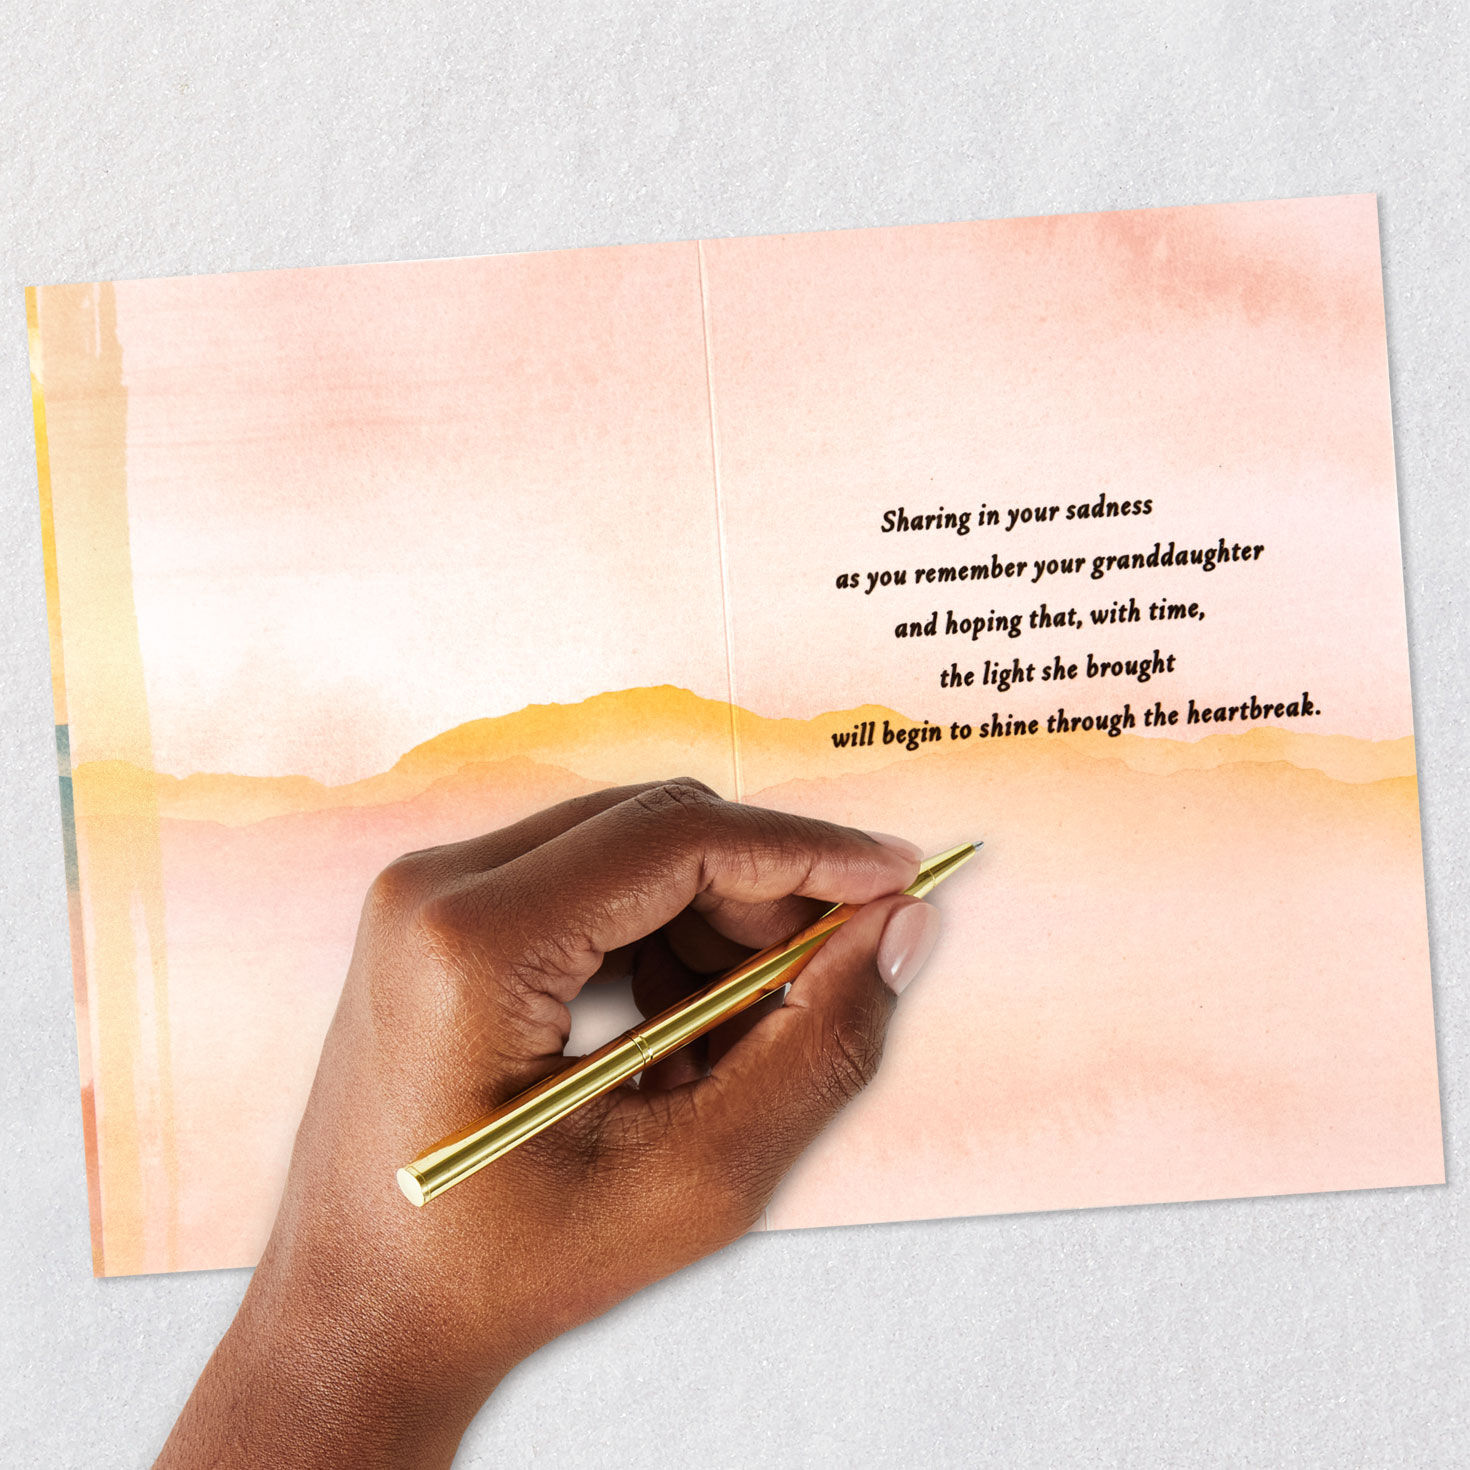 Sharing in your sadness
as you remember your granddaughter
and hoping that, with time,
the light she brought
will begin to shine through the heartbreak.